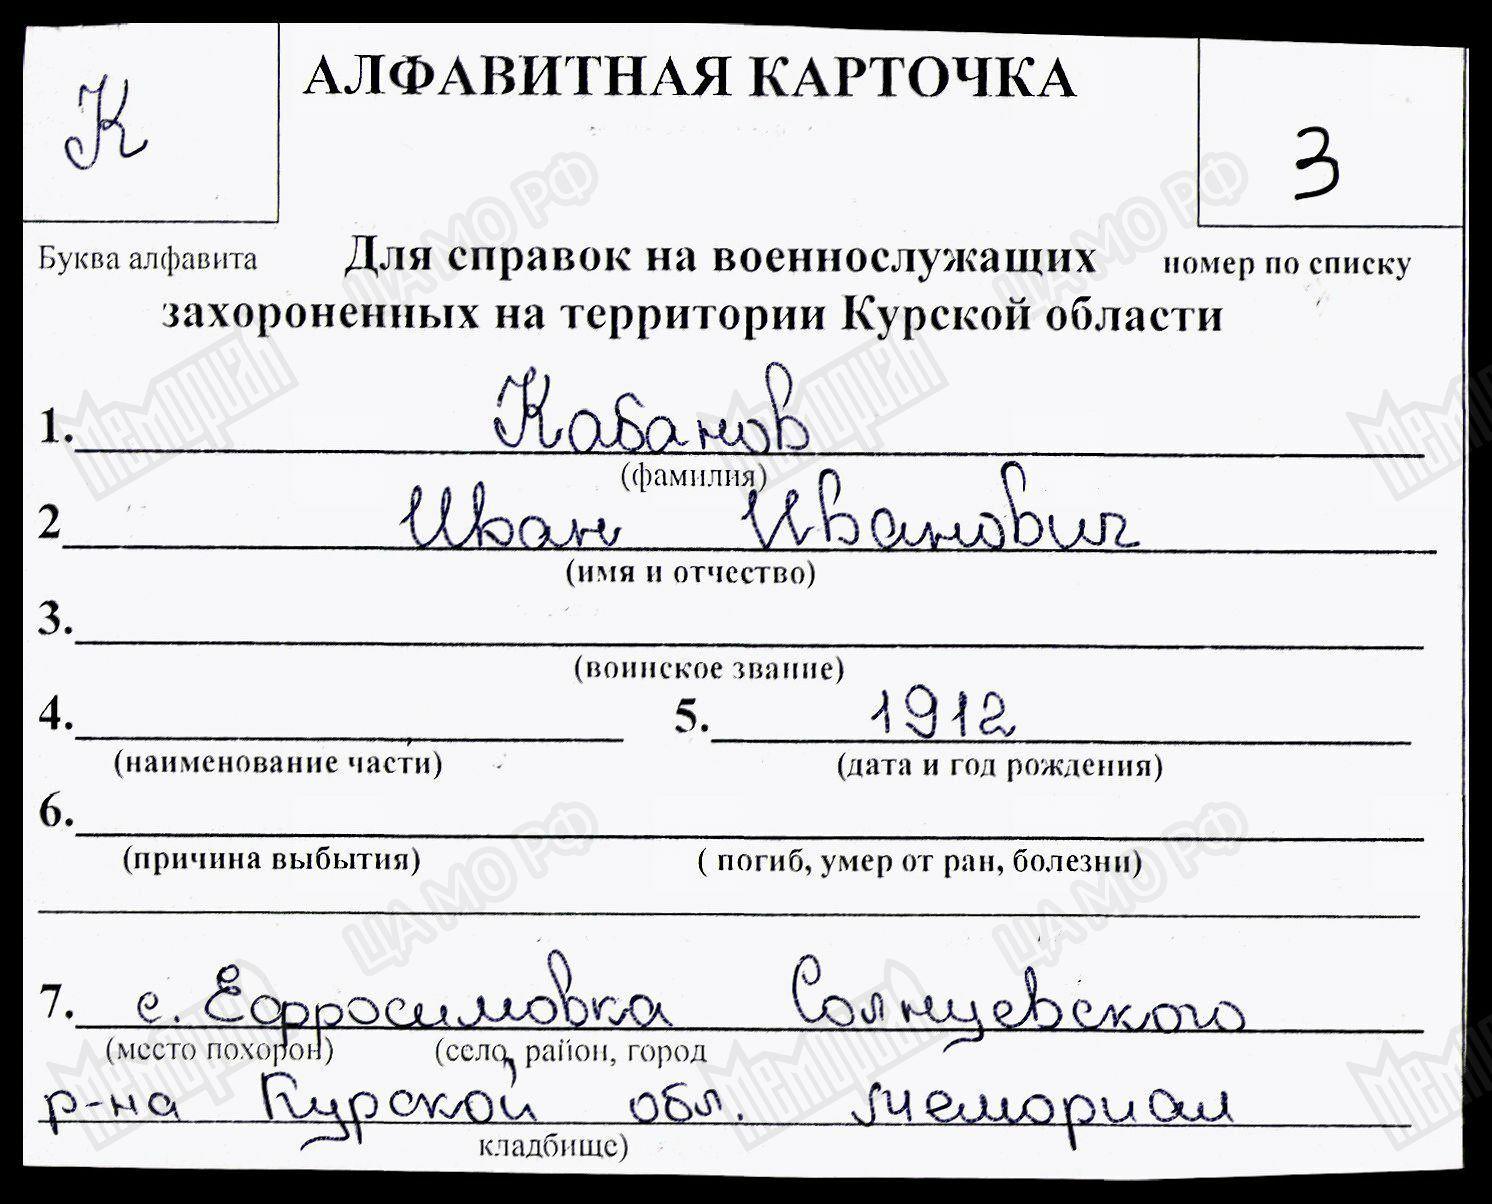 К
АЛФАВИТНАЯ КАРТОЧКА
3
Буква алфавита
Для справок на военнослужащих
номер по списку
захороненных на территории Курской области
1. Кабанов
(фамилия)
2 Иван Иванович
(имя и отчество)
3.
(воинское звание)
4. 5. 1912
(наименование части) (дата и год рождения)
6.
(причина выбытия) ( погиб, умер от ран, болезни)
7. с. Ефросимовка Солнцевского
(место похорон) (село, район, город
р-на Курской обл. мемориал
кладбище)
ЦАМО РФ
Мемориал